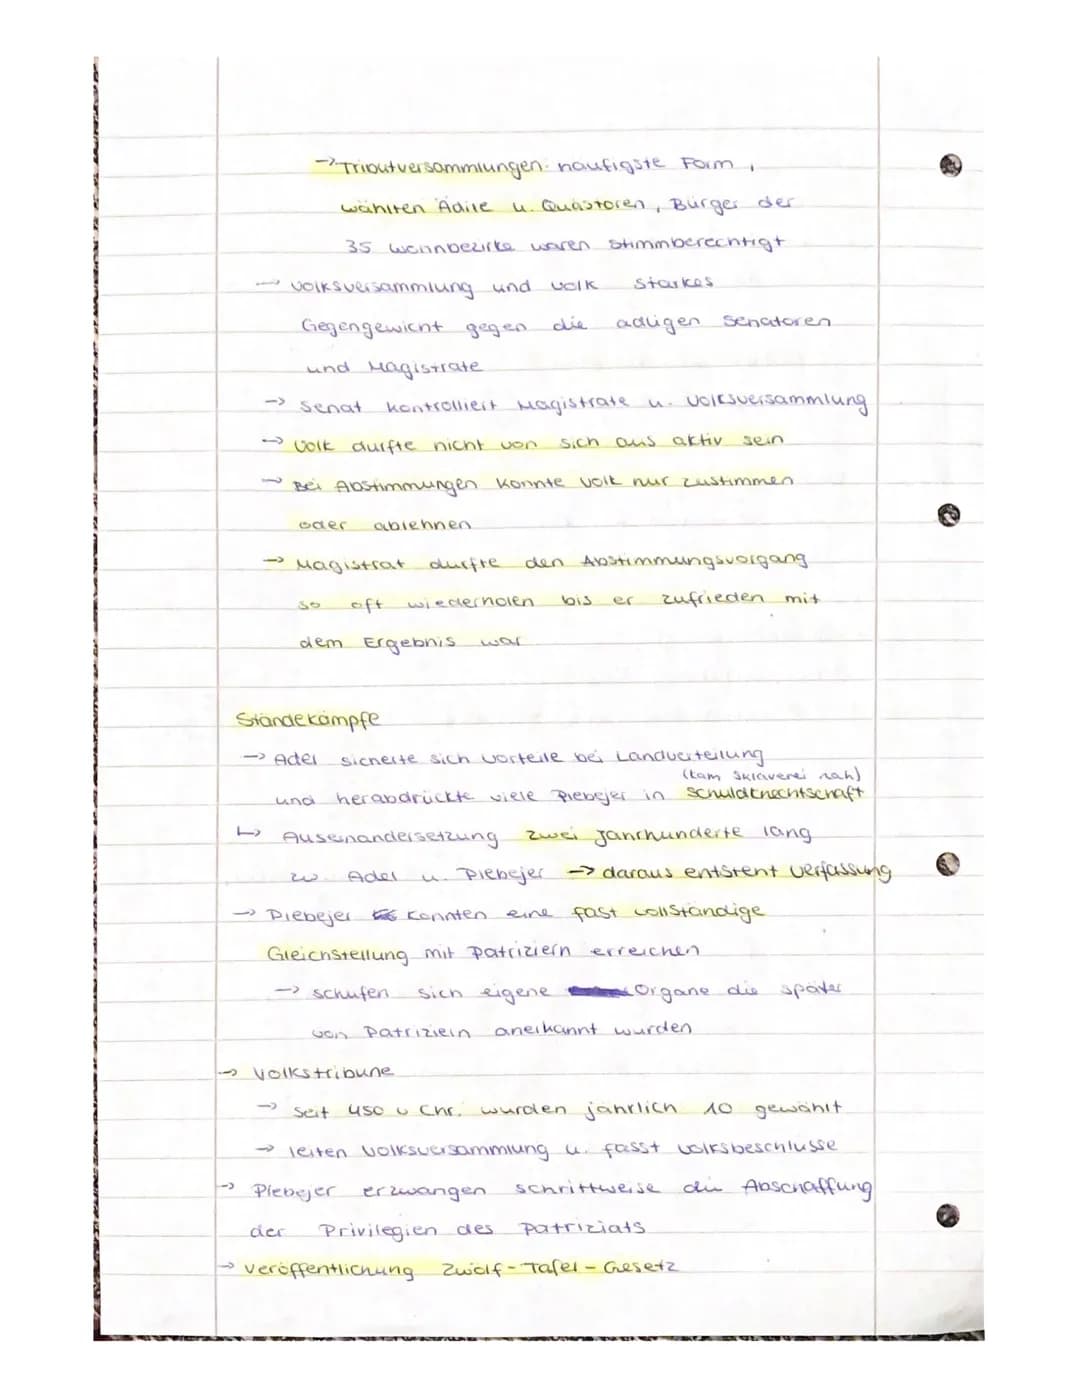 → Tributversammlungen: häufigste Form,
wählten Ädile u. Quästoren, Bürger der
35 Wohnbezirke waren stimmberechtigt
→ Volksversammlung und Volk starkes
Gegengewicht gegen die adligen Senatoren
und Magistrate
→ Senat kontrolliert Magistrate u. Volksversammlung
→ Volk durfte nicht von sich aus aktiv sein
→ Bei Abstimmungen konnte Volk nur zustimmen
oder ablehnen
→ Magistrat durfte den Abstimmungsvorgang
so oft wiederholen bis er zufrieden mit
dem Ergebnis war
Ständekämpfe
→ Adel sicherte sich Vorteile bei Landverteilung
(kam Sklaverei nah)
und herabdrückte viele Plebejer in Schuldknechtschaft
↳ Auseinandersetzung zwei Jahrhunderte lang
zw. Adel u. Plebejer → daraus entsteht Verfassung
→ Plebejer konnten eine fast vollständige
Gleichstellung mit Patriziern erreichen
→ schufen sich eigene Organe die später
von Patriziern anerkannt wurden
→ Volkstribune
→ Seit 450 v Chr. wurden jährlich 10 gewählt
→ leiten Volksversammlung u. fasst Volksbeschlüsse
→ Plebejer erzwangen schrittweise die Abschaffung
der Privilegien des Patriziats
→ Veröffentlichung Zwölf-Tafel-Gesetz